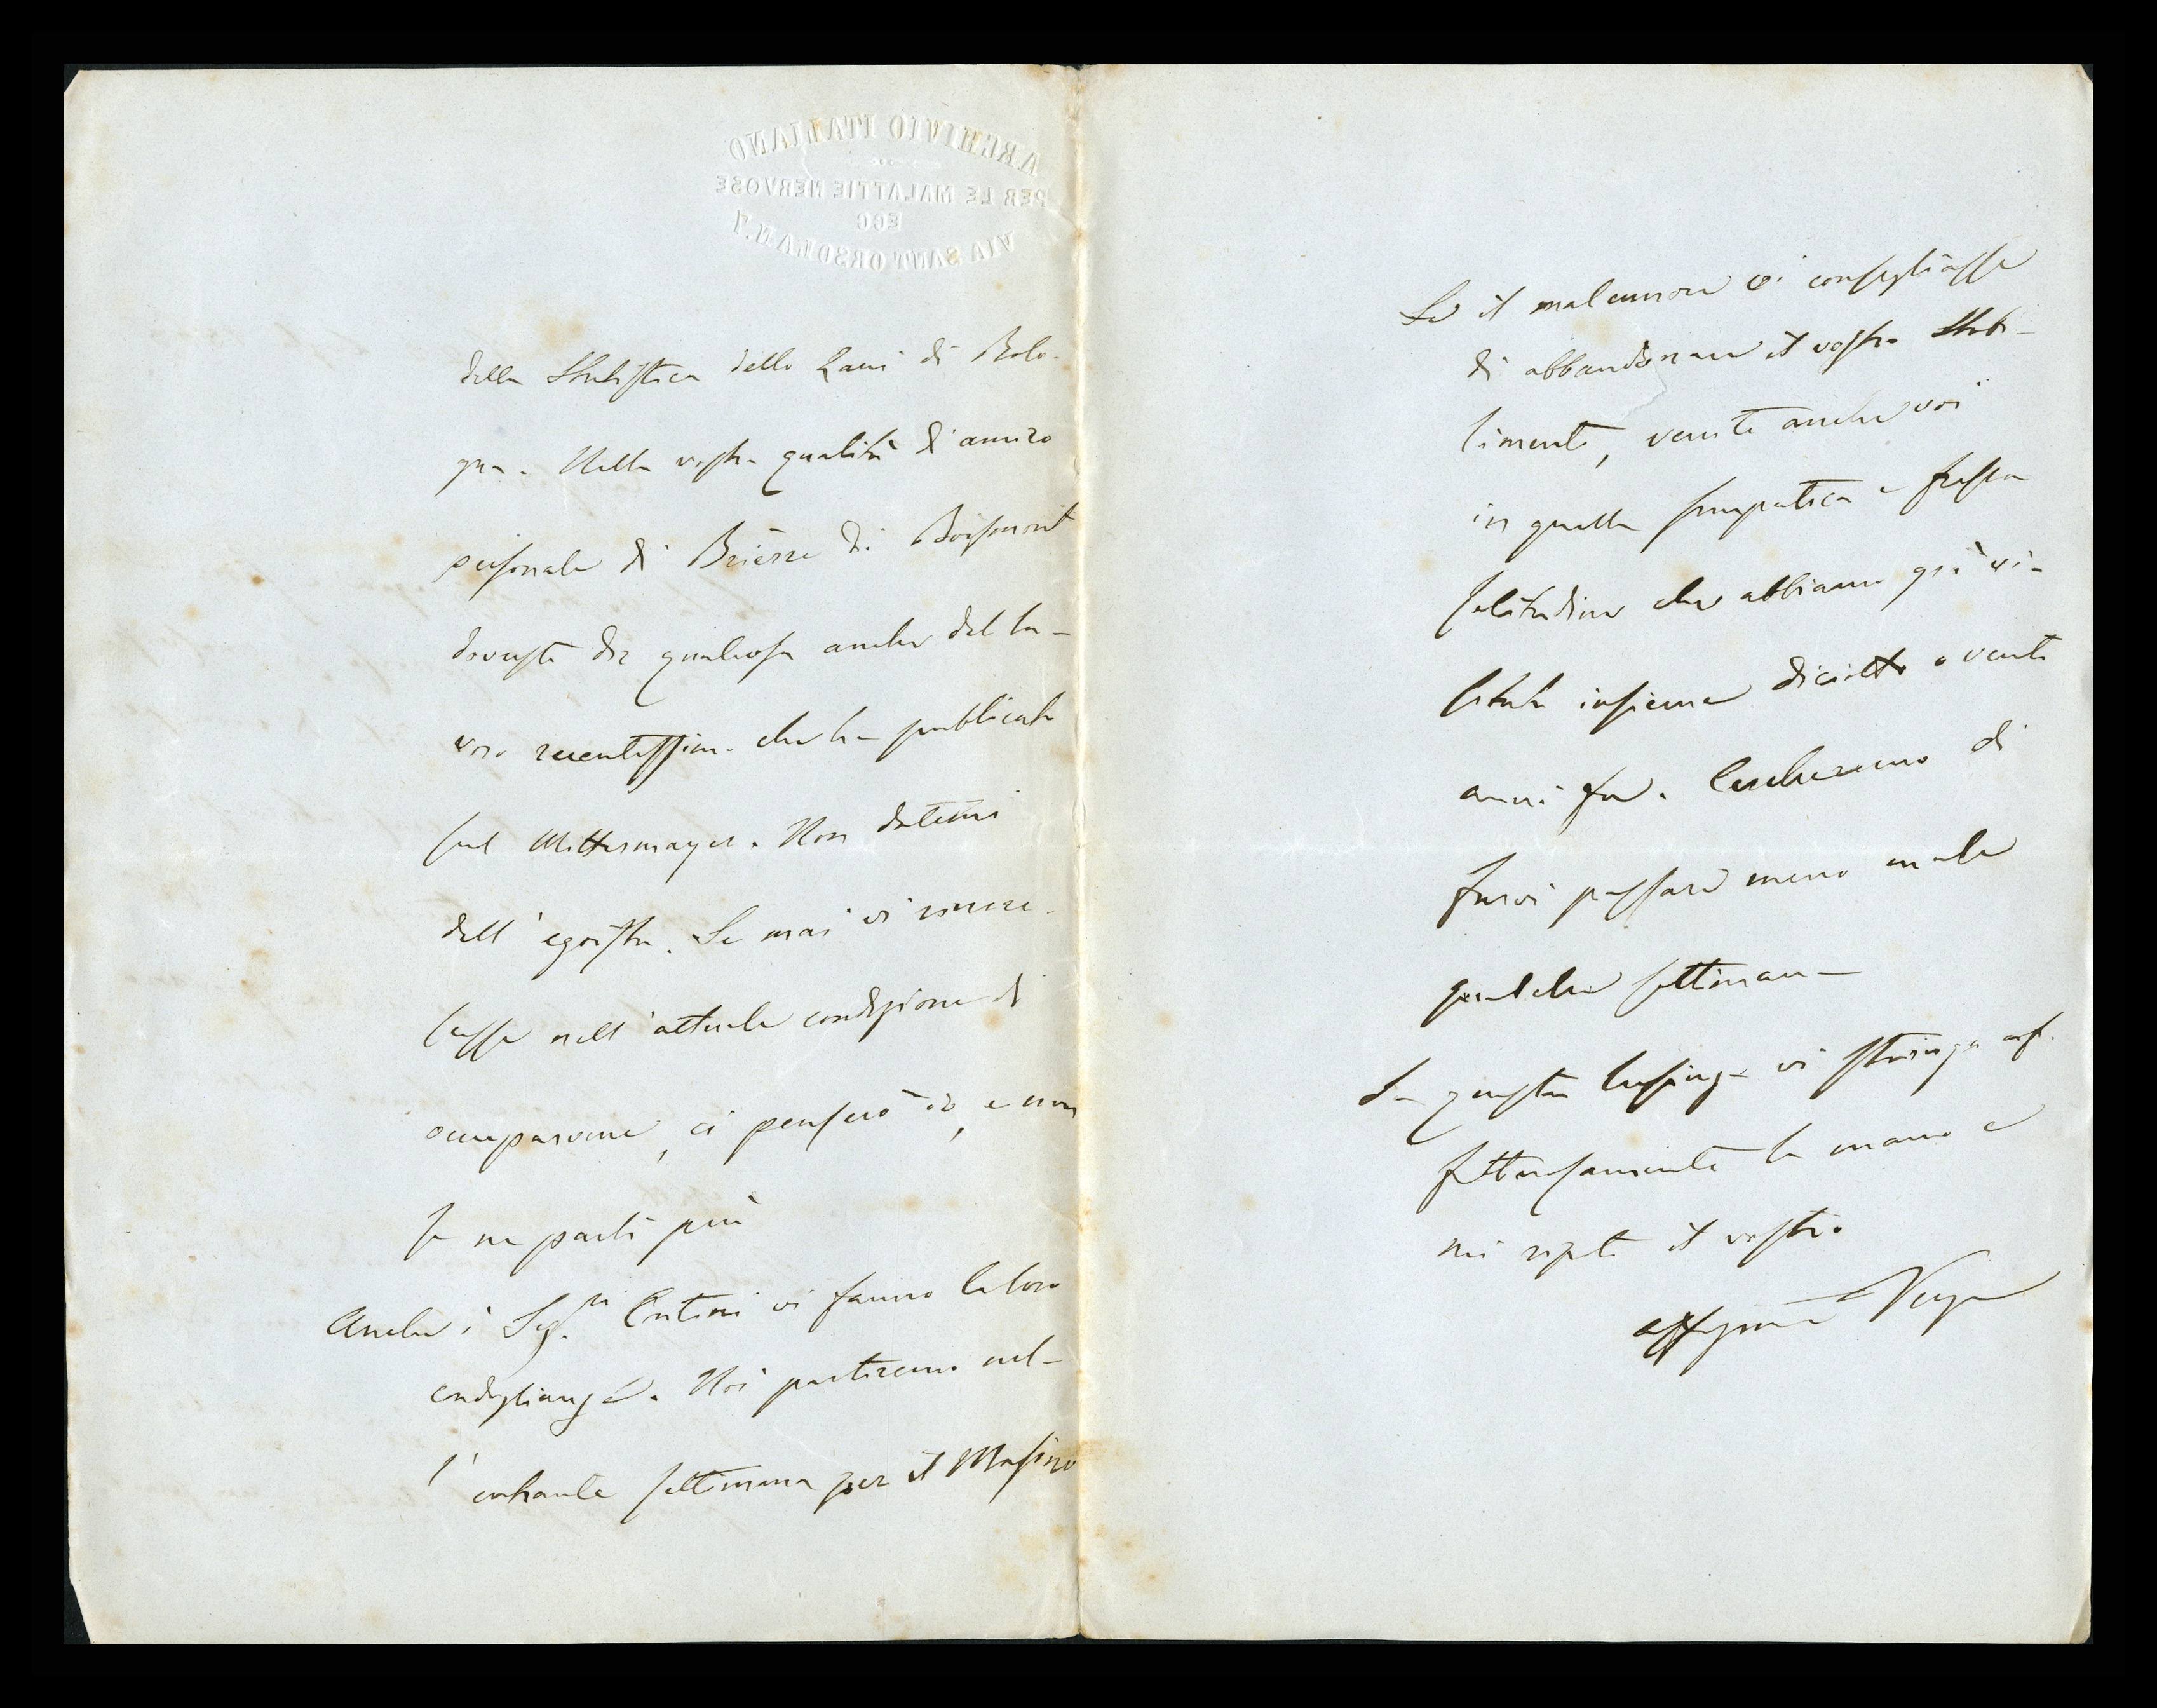 ARCHIVIO ITALIANO
PER LE MALATTIE NERVOSE
ECC
VIA SANT'ORSOLA N. 1
della Statistica dello Zani di Bolo-
gna. Nella vostra qualità di amico
personale di Brierre di Boismont
doveste dir qualcosa anche del la-
voro recentissimo che ha pubblicato
sul Mittermayer. Non datemi
dell'egoista. Se mai vi rincre-
cesse nell'attuale condizione di
occuparvene, ci penserò io, e non
se ne parli più
Anche i Sig.ri Contini vi fanno le loro
condoglianze. Noi partiremo nel-
l'entrante settimana per il Masino
Se il malumore vi consigliasse
di abbandonare il vostro Stabi-
limento, venite anche voi
in quella simpatica e fresca
solitudine che abbiamo già vi-
sitata insieme diciotto o venti
anni fa. Cercheremo di
farvi passare meno male
qualche settimana
In questa lusinga vi stringo af-
fettuosamente la mano e
mi ripeto il vostro
Verga